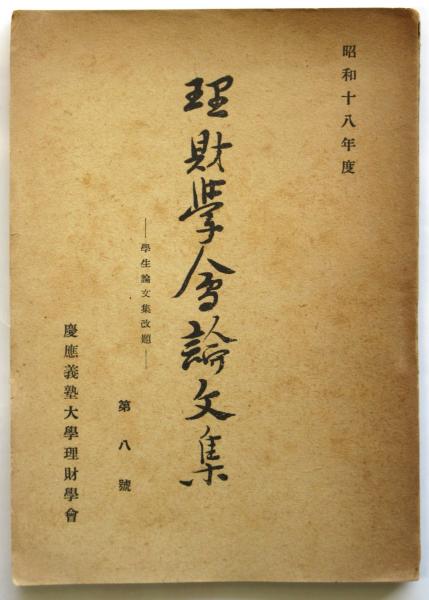 昭和十八年度
理財學會論文集
——學生論文集改題——
第八號
慶應義塾大學理財學會